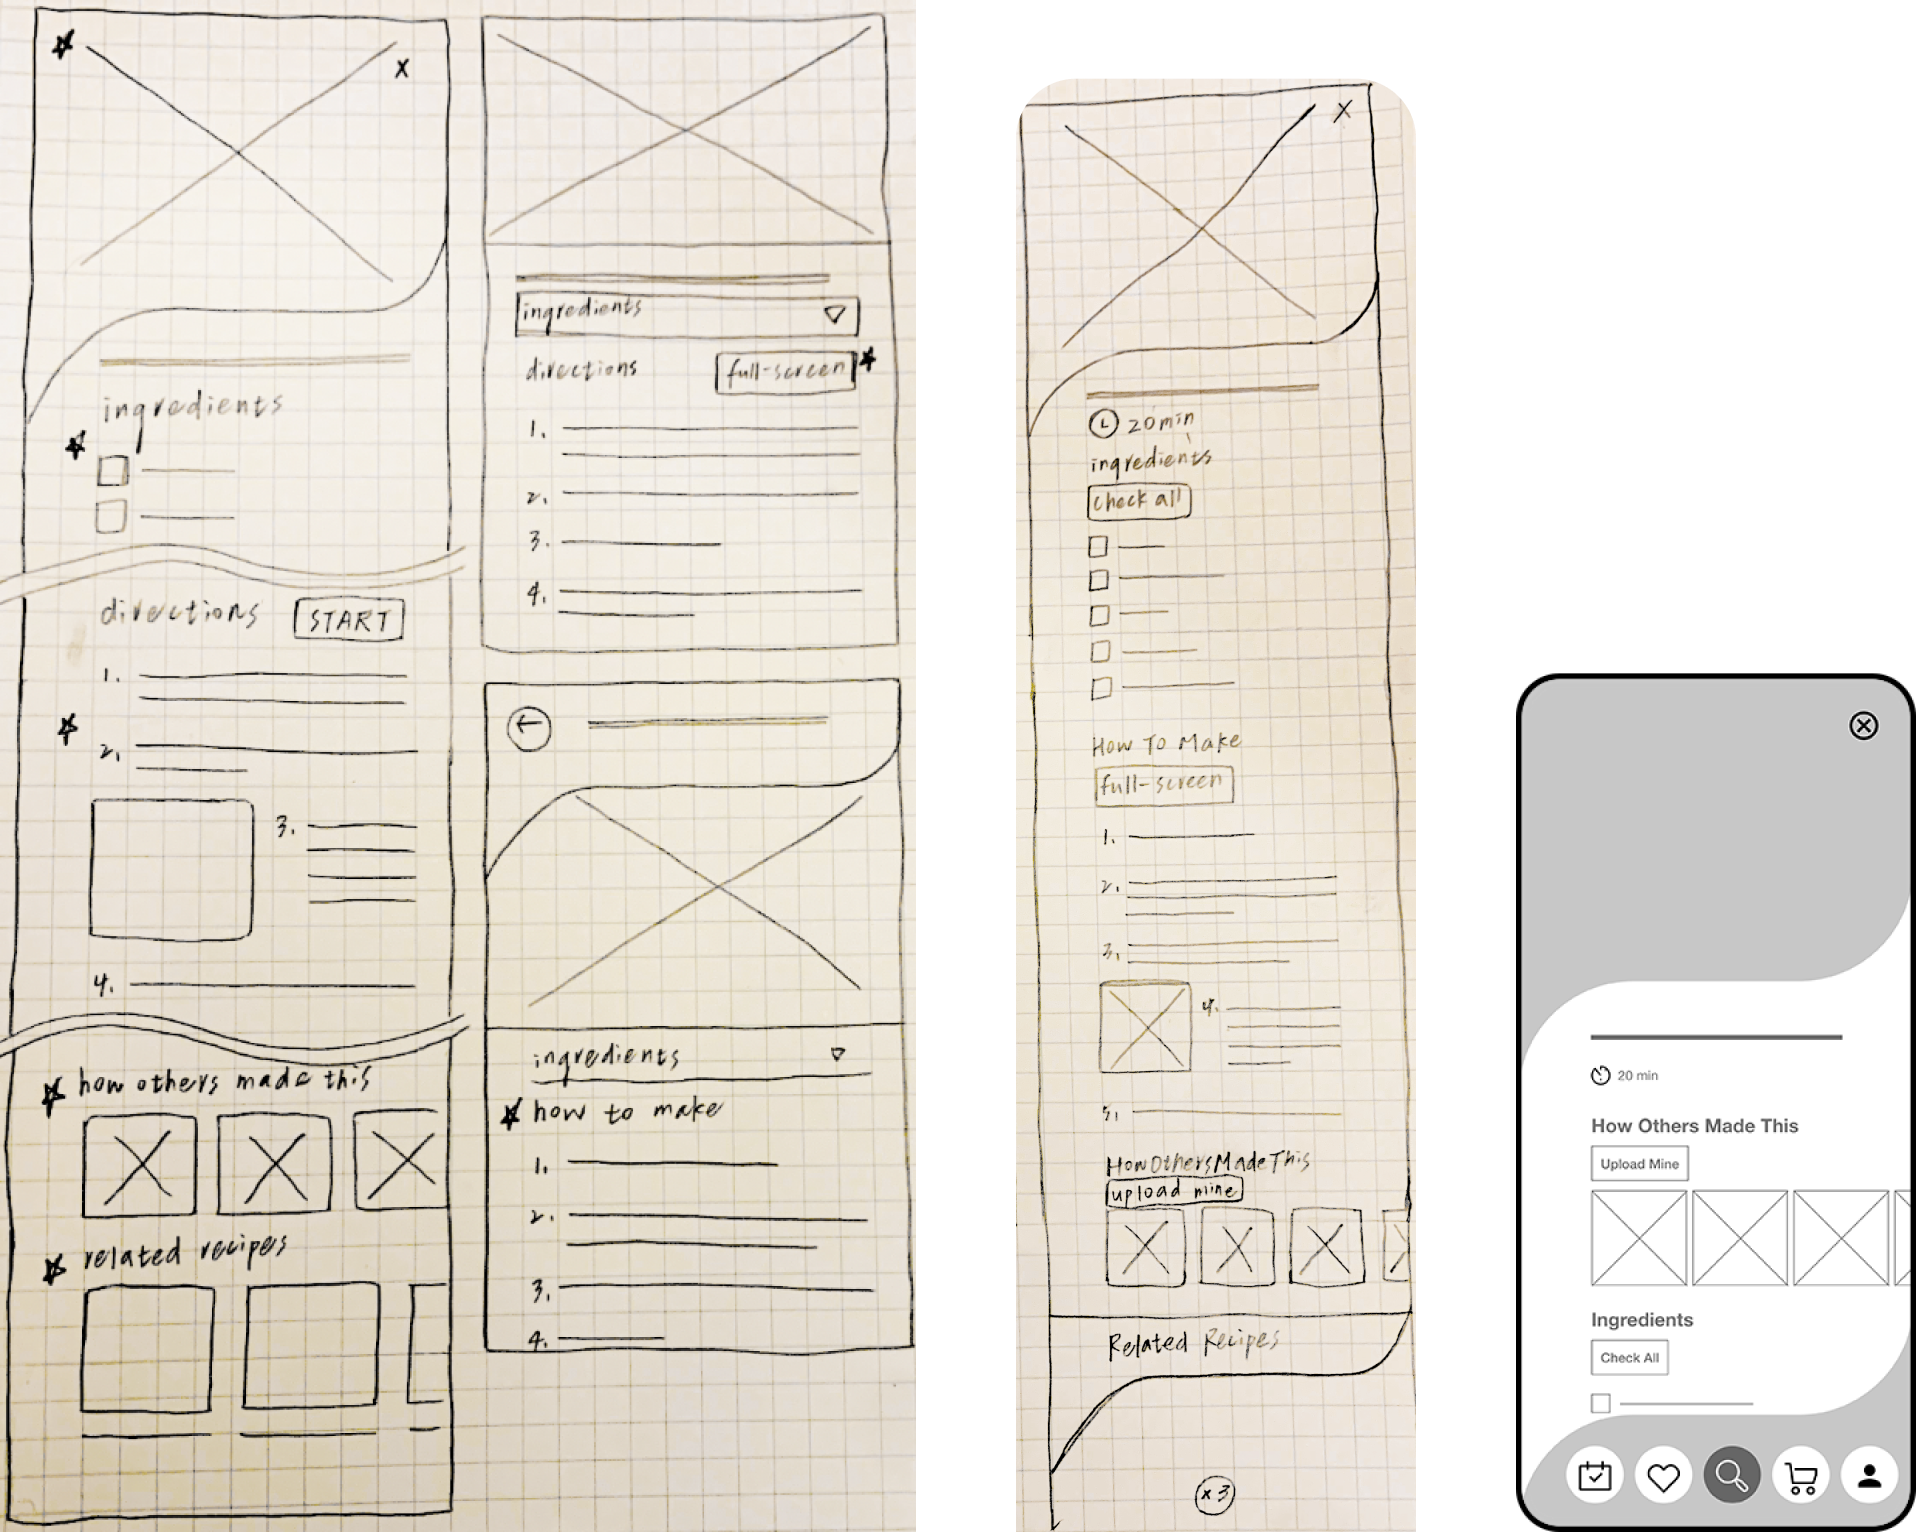 X
ingredients
directions
START
1.
2.
3.
4.
how others made this
related recipes
ingredients
directions
full-screen
1.
2.
3.
4.
ingredients
how to make
1.
2.
3.
4.
X
20min
ingredients
check all
How To Make
full-screen
1.
2.
3.
4.
5.
HowOthersMadeThis
upload mine
Related Recipes
x3
20 min
How Others Made This
Upload Mine
Ingredients
Check All